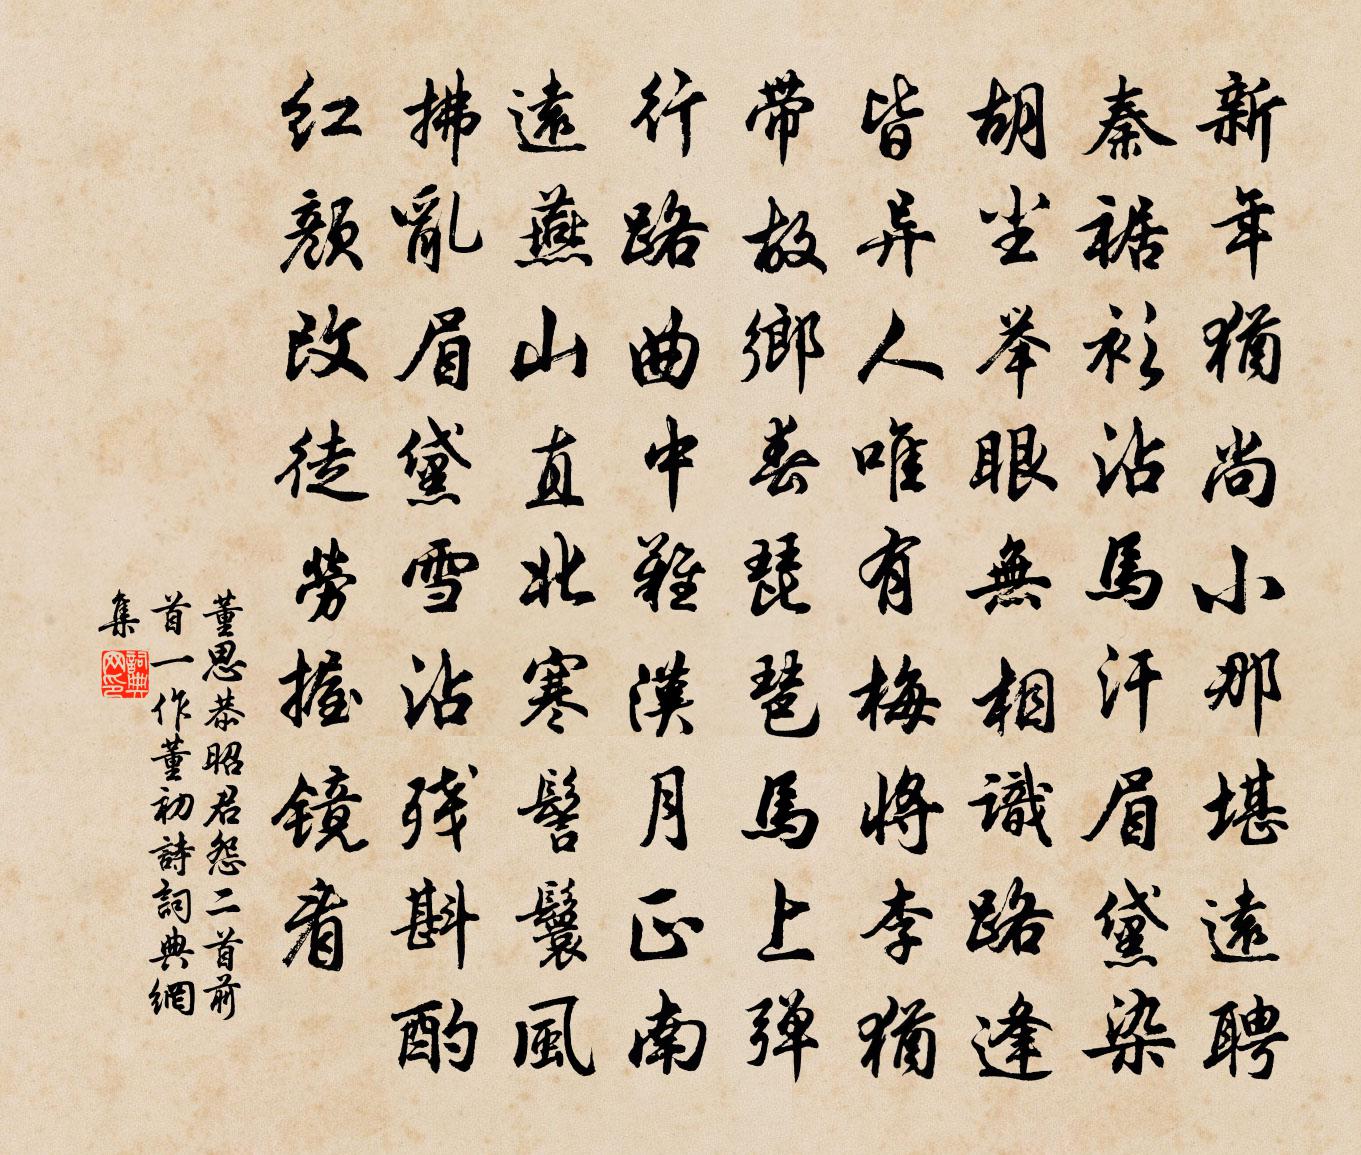 新年猶尚小那堪遠聘
秦裾衫沾馬汗眉黛染
胡尘举眼無相識路逢
皆异人唯有梅将李猶
带故鄉春琵琶馬上弹
行路曲中難漢月正南
遠燕山直北寒髻鬟風
拂亂眉黛雪沾残斟酌
红颜改徒劳握镜看
董思恭昭君怨二首前
首一作董初詩詞典網
集
詞典网印